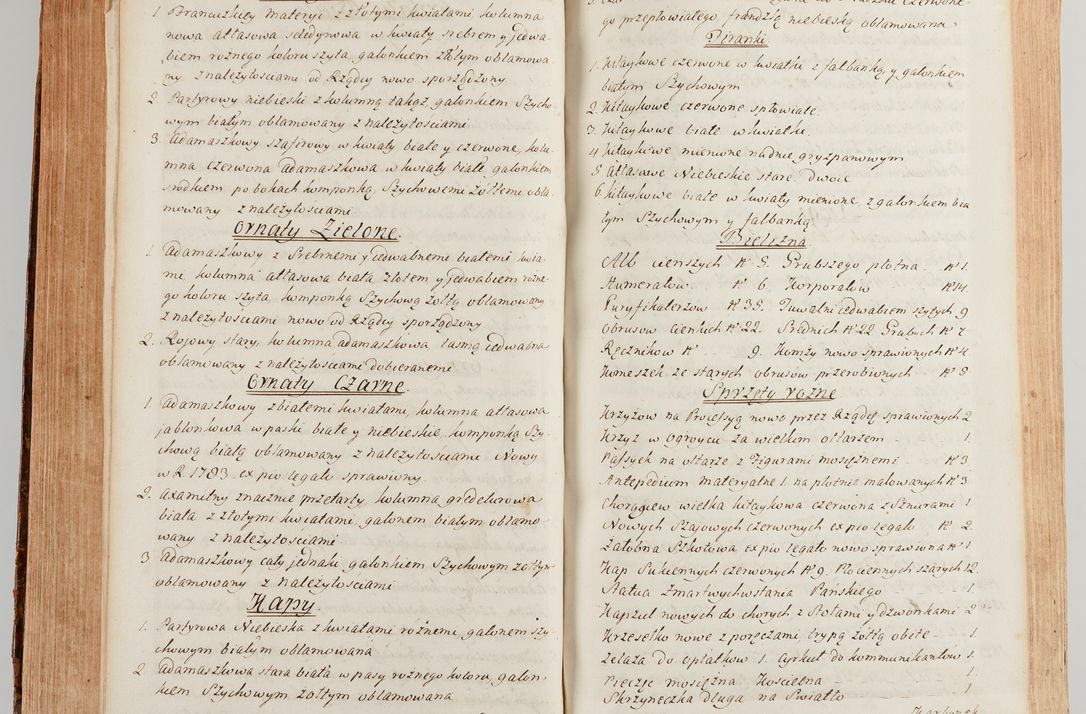 1. Francuzkiey materyi z złotymi kwiatami kolumna
nowa atłasowa seledynowa w kwiaty srebrem y jedwa-
biem rożnego koloru szyta, galonkiem złotym oblamowa
ny z należytościami od Rządcy nowo sporządzony.
2. Partyrowy niebieski z kolumną takąż, galonkiem Szycho-
wym białym oblamowany z należytościami
3. Adamaszkowy szafirowy w kwiaty białe y czerwone, kolu-
mna czerwona adamaszkowa w kwiaty białe, galonkiem
srodkiem po bokach komponką Szychowemi żółtemi obla-
mowany z należytościami
Ornaty Zielone.
1. Adamaszkowy z Srebrnemi y jedwabnemi białemi kwia-
mi, kolumna atłasowa biała złotem y jedwabiem rożne-
go koloru szyta, komponką Szychową żołtą oblamowany
z należytościami nowo od Rządcy sporządzony
2. Rojowy stary, kolumna adamaszkowa tasmą jedwabna
oblamowany z należytościami dobieranemi
Ornaty Czarne.
1. Adamaszkowy z białemi kwiatami, kolumna atłasowa
jabłonkowa w paski białe y niebieskie, komponką Szy-
chową białą oblamowany z należytościami Nowy
w R. 1783. ex pio legato sprawiony.
2. Axamitny znacznie przetarty, kolumna gredeturowa
biała z złotymi kwiatami, galonem białym oblamo-
wany z należytościami
3. Adamaszkowy cały jednaki galonkiem Szychowym żołtym
oblamowany z należytościami
Kapy.
1. Partyrowa Niebieska z kwiatami rożnemi, galonem szy-
chowym białym oblamowana
2. Adamaszkowa stara biała w pasy rożnego koloru, galon-
kiem Szychowym żołtym oblamowana
go przepłowiałego frandzlą niebieską oblamowana
Firanki
1. Kitaykowe czerwone w kwiatki z falbanką y galonkiem
białym Szychowym
2. Kitaykowe czerwone spłowiałe
3. Kitaykowe białe w kwiatki
4. Kitaykowe mienione na dnie gryzpanowym
5. Atłasowe Niebieskie stare dwoie
6. Kitaykowe białe w kwiaty mienione, z galonkiem bia
łym Szychowym y falbanką
Bielizna.
Alb cienszych N° 5. Grubszego płotna N° 1.
Humerałow N° 6. Korporałow N° 14.
Puryfikaterzow N° 35. Tuwalni jedwabiem szytych 9
Obrusow cienkich N° 22. Srednich N° 22 Grubych N° 7.
Ręcznikow N° 9. Komży nowo sprawionych N° 4.
Komeszek ze starych obrusów przerobionych N° 8
Sprzęty rożne
Krzyżow na Processyą nowo przez Rządcę sprawionych 2.
Krzyż w Ogroycu za wielkim ołtarzem 1.
Passyek na ołtarze z Figurami mosiężnemi N° 3.
Antepedium materyalne 1. na płotnie malowanych N° 3
Chorągiew wielka kitaykowa czerwona z Sznurami 1
Nowych Szajowych czerwonych ex pio legato N° 2.
Żałobna Szkotowa ex pio legato nowo sprawiona N° 1
Kap Sukiennych czerwonych N° 9. Płociennych szarych 12.
Statua Zmartwychwstania Pańskiego 1.
Kapzul nowych do chorych z Stołami y dzwonkami 2
Krzesełko nowe z poręczami, trypą żołtą obite 1.
Żelaza do opłatkow 1. Cyrkuł do kommunikantów 1.
Pieczęc mosiężna Koscielna 1
Skrzyneczka długa na Swiatło 1